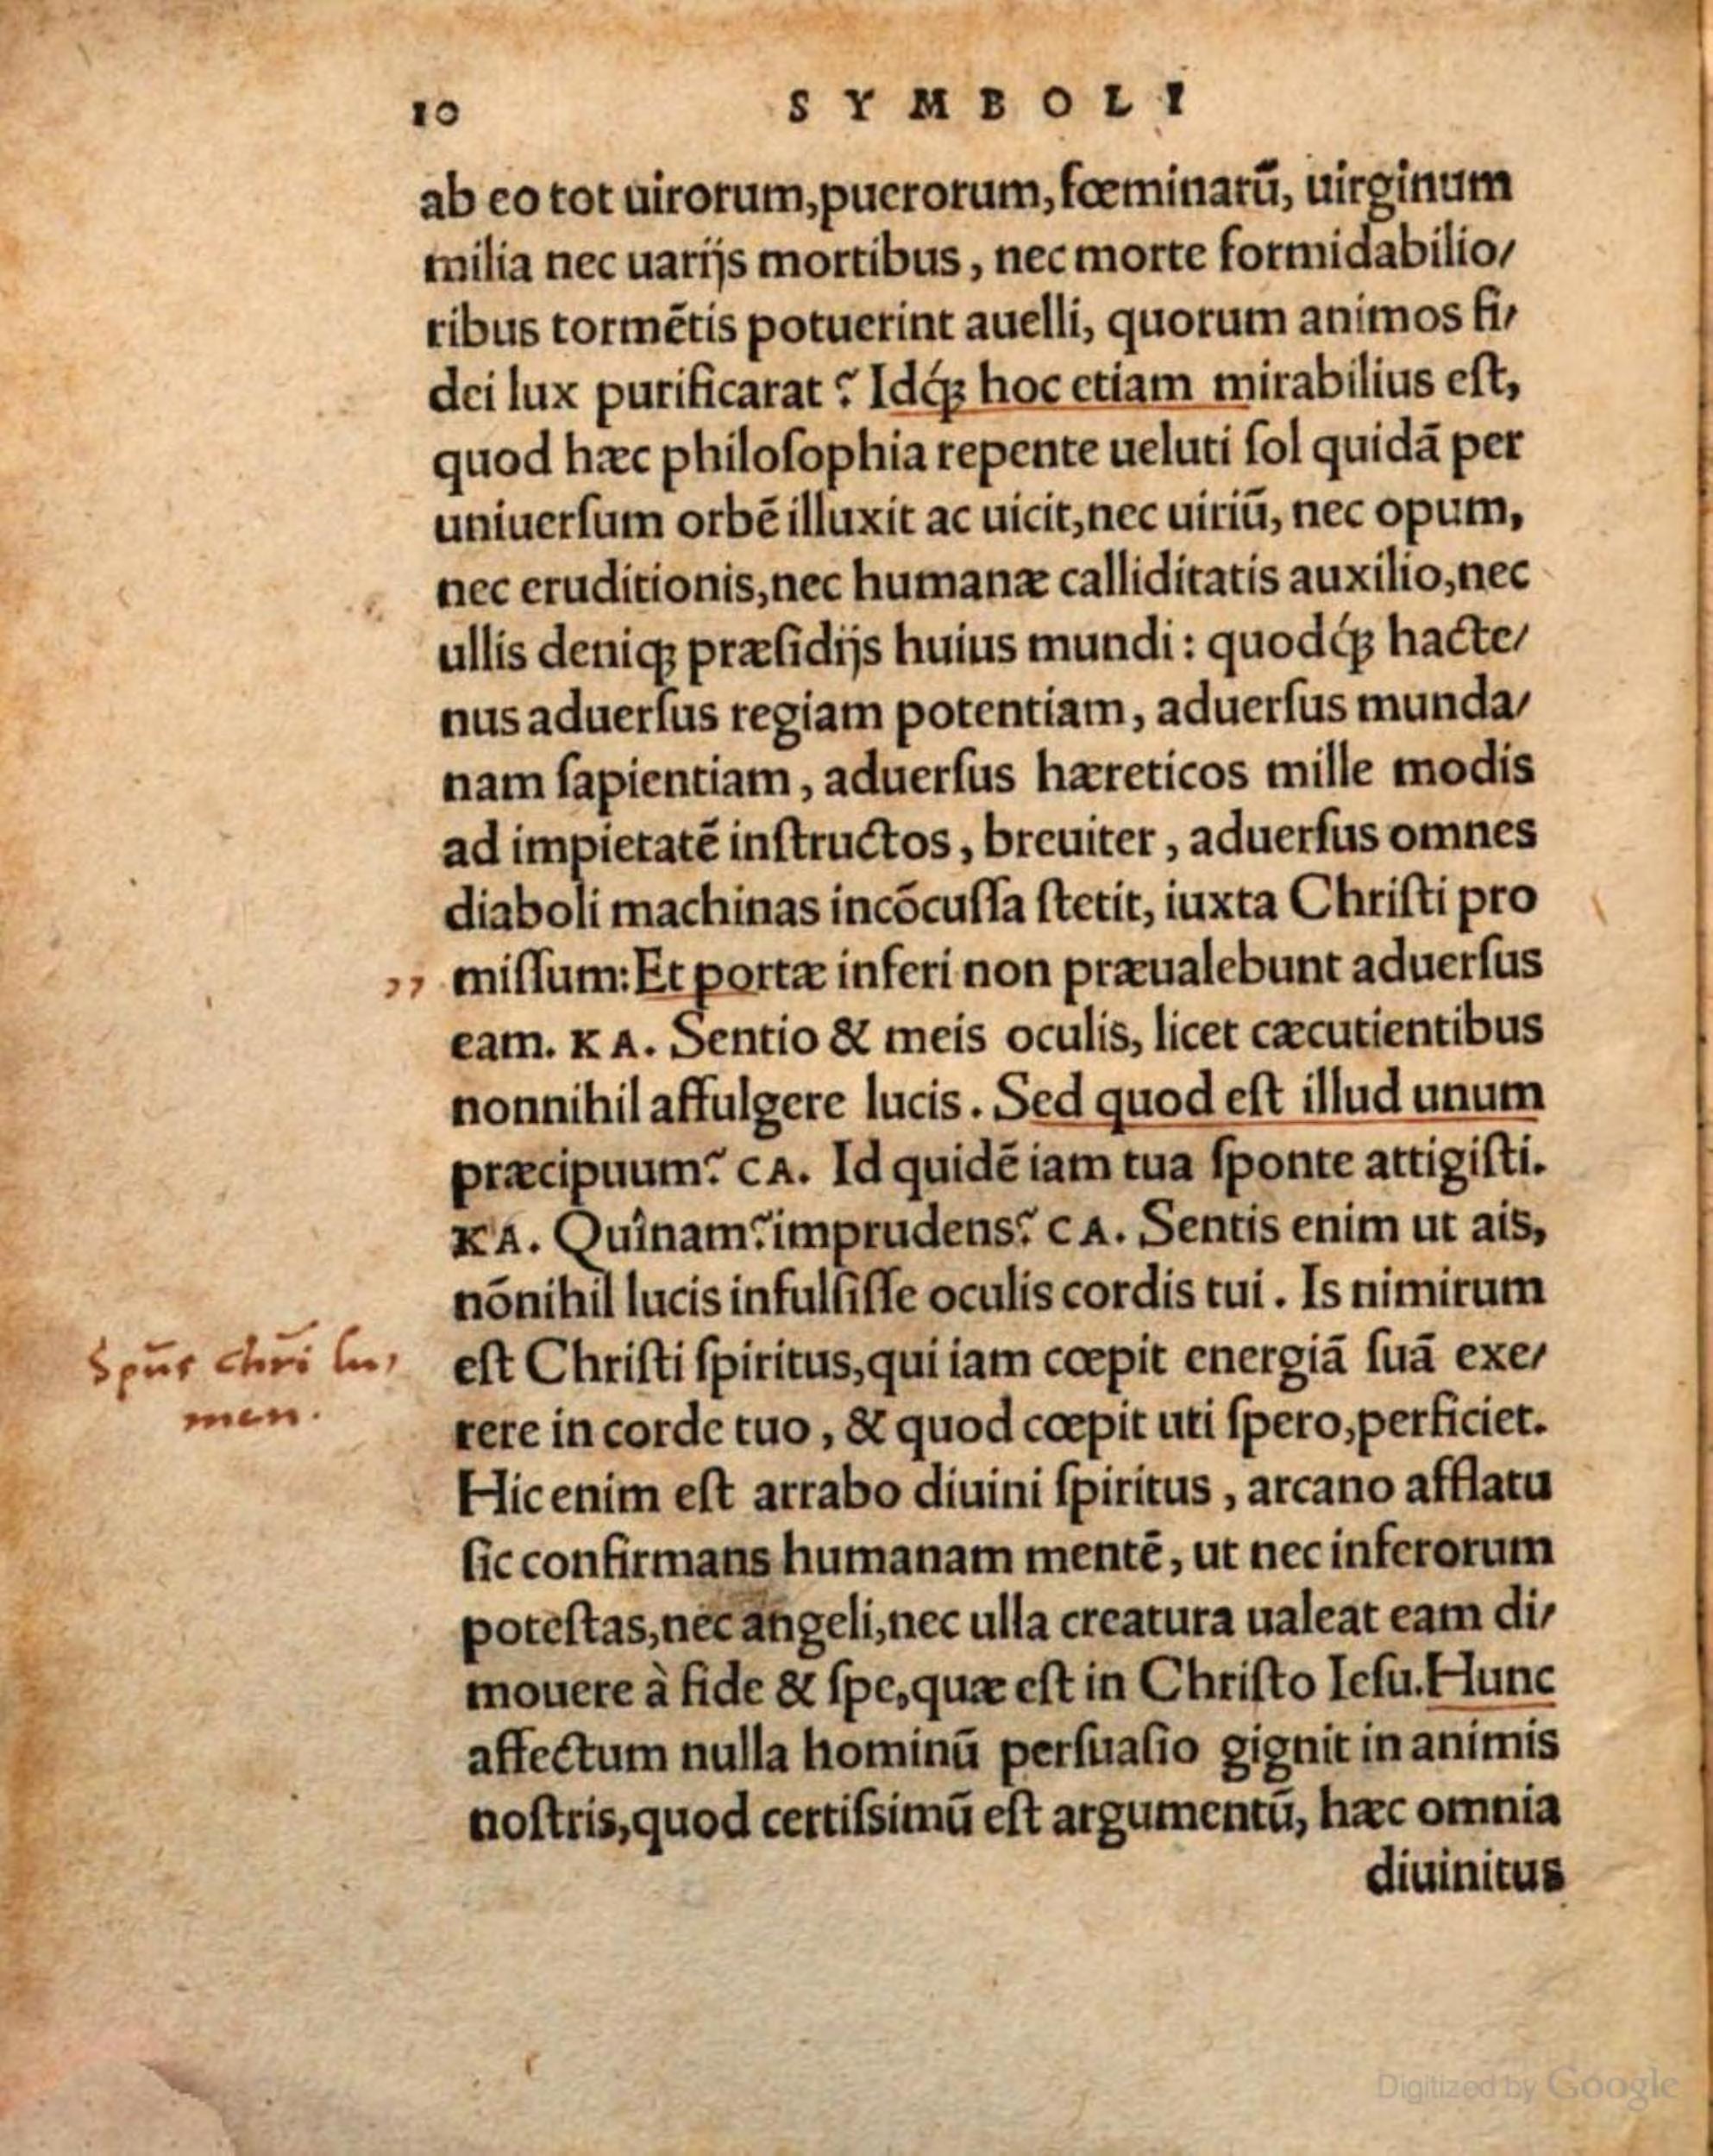 10 SYMBOLI
ab eo tot uirorum,puerorum,fœminarū, uirginum
milia nec uarijs mortibus, nec morte formidabilio/
ribus tormētis potuerint auelli, quorum animos fi/
dei lux purificarat? Idq́ꝫ hoc etiam mirabilius eſt,
quod hæc philoſophia repente ueluti ſol quidā per
uniuerſum orbē illuxit ac uicit,nec uiriū, nec opum,
nec eruditionis,nec humanæ calliditatis auxilio,nec
ullis deniqꝫ præſidijs huius mundi: quodq́ꝫ hacte/
nus aduerſus regiam potentiam, aduerſus munda/
nam ſapientiam, aduerſus hæreticos mille modis
ad impietatē inſtructos, breuiter, aduerſus omnes
diaboli machinas incōcuſſa ſtetit, iuxta Chriſti pro
,, miſſum:Et portæ inferi non præualebunt aduerſus
eam. KA. Sentio & meis oculis, licet cæcutientibus
nonnihil affulgere lucis. Sed quod eſt illud unum
præcipuum? CA. Id quidē iam tua ſponte attigiſti.
KA. Quînam?imprudens? CA. Sentis enim ut ais,
nōnihil lucis infulſiſſe oculis cordis tui. Is nimirum
Spūs chrī lu,
men.
eſt Chriſti ſpiritus,qui iam cœpit energiā ſuā exe/
rere in corde tuo, & quod cœpit uti ſpero,perficiet.
Hic enim eſt arrabo diuini ſpiritus, arcano afflatu
ſic confirmans humanam mentē, ut nec inferorum
poteſtas,nec angeli,nec ulla creatura ualeat eam di/
mouere à fide & ſpe,quæ eſt in Chriſto Ieſu.Hunc
affectum nulla hominū perſuaſio gignit in animis
noſtris,quod certiſsimū eſt argumentū, hæc omnia
diuinitus
Digitized by Google